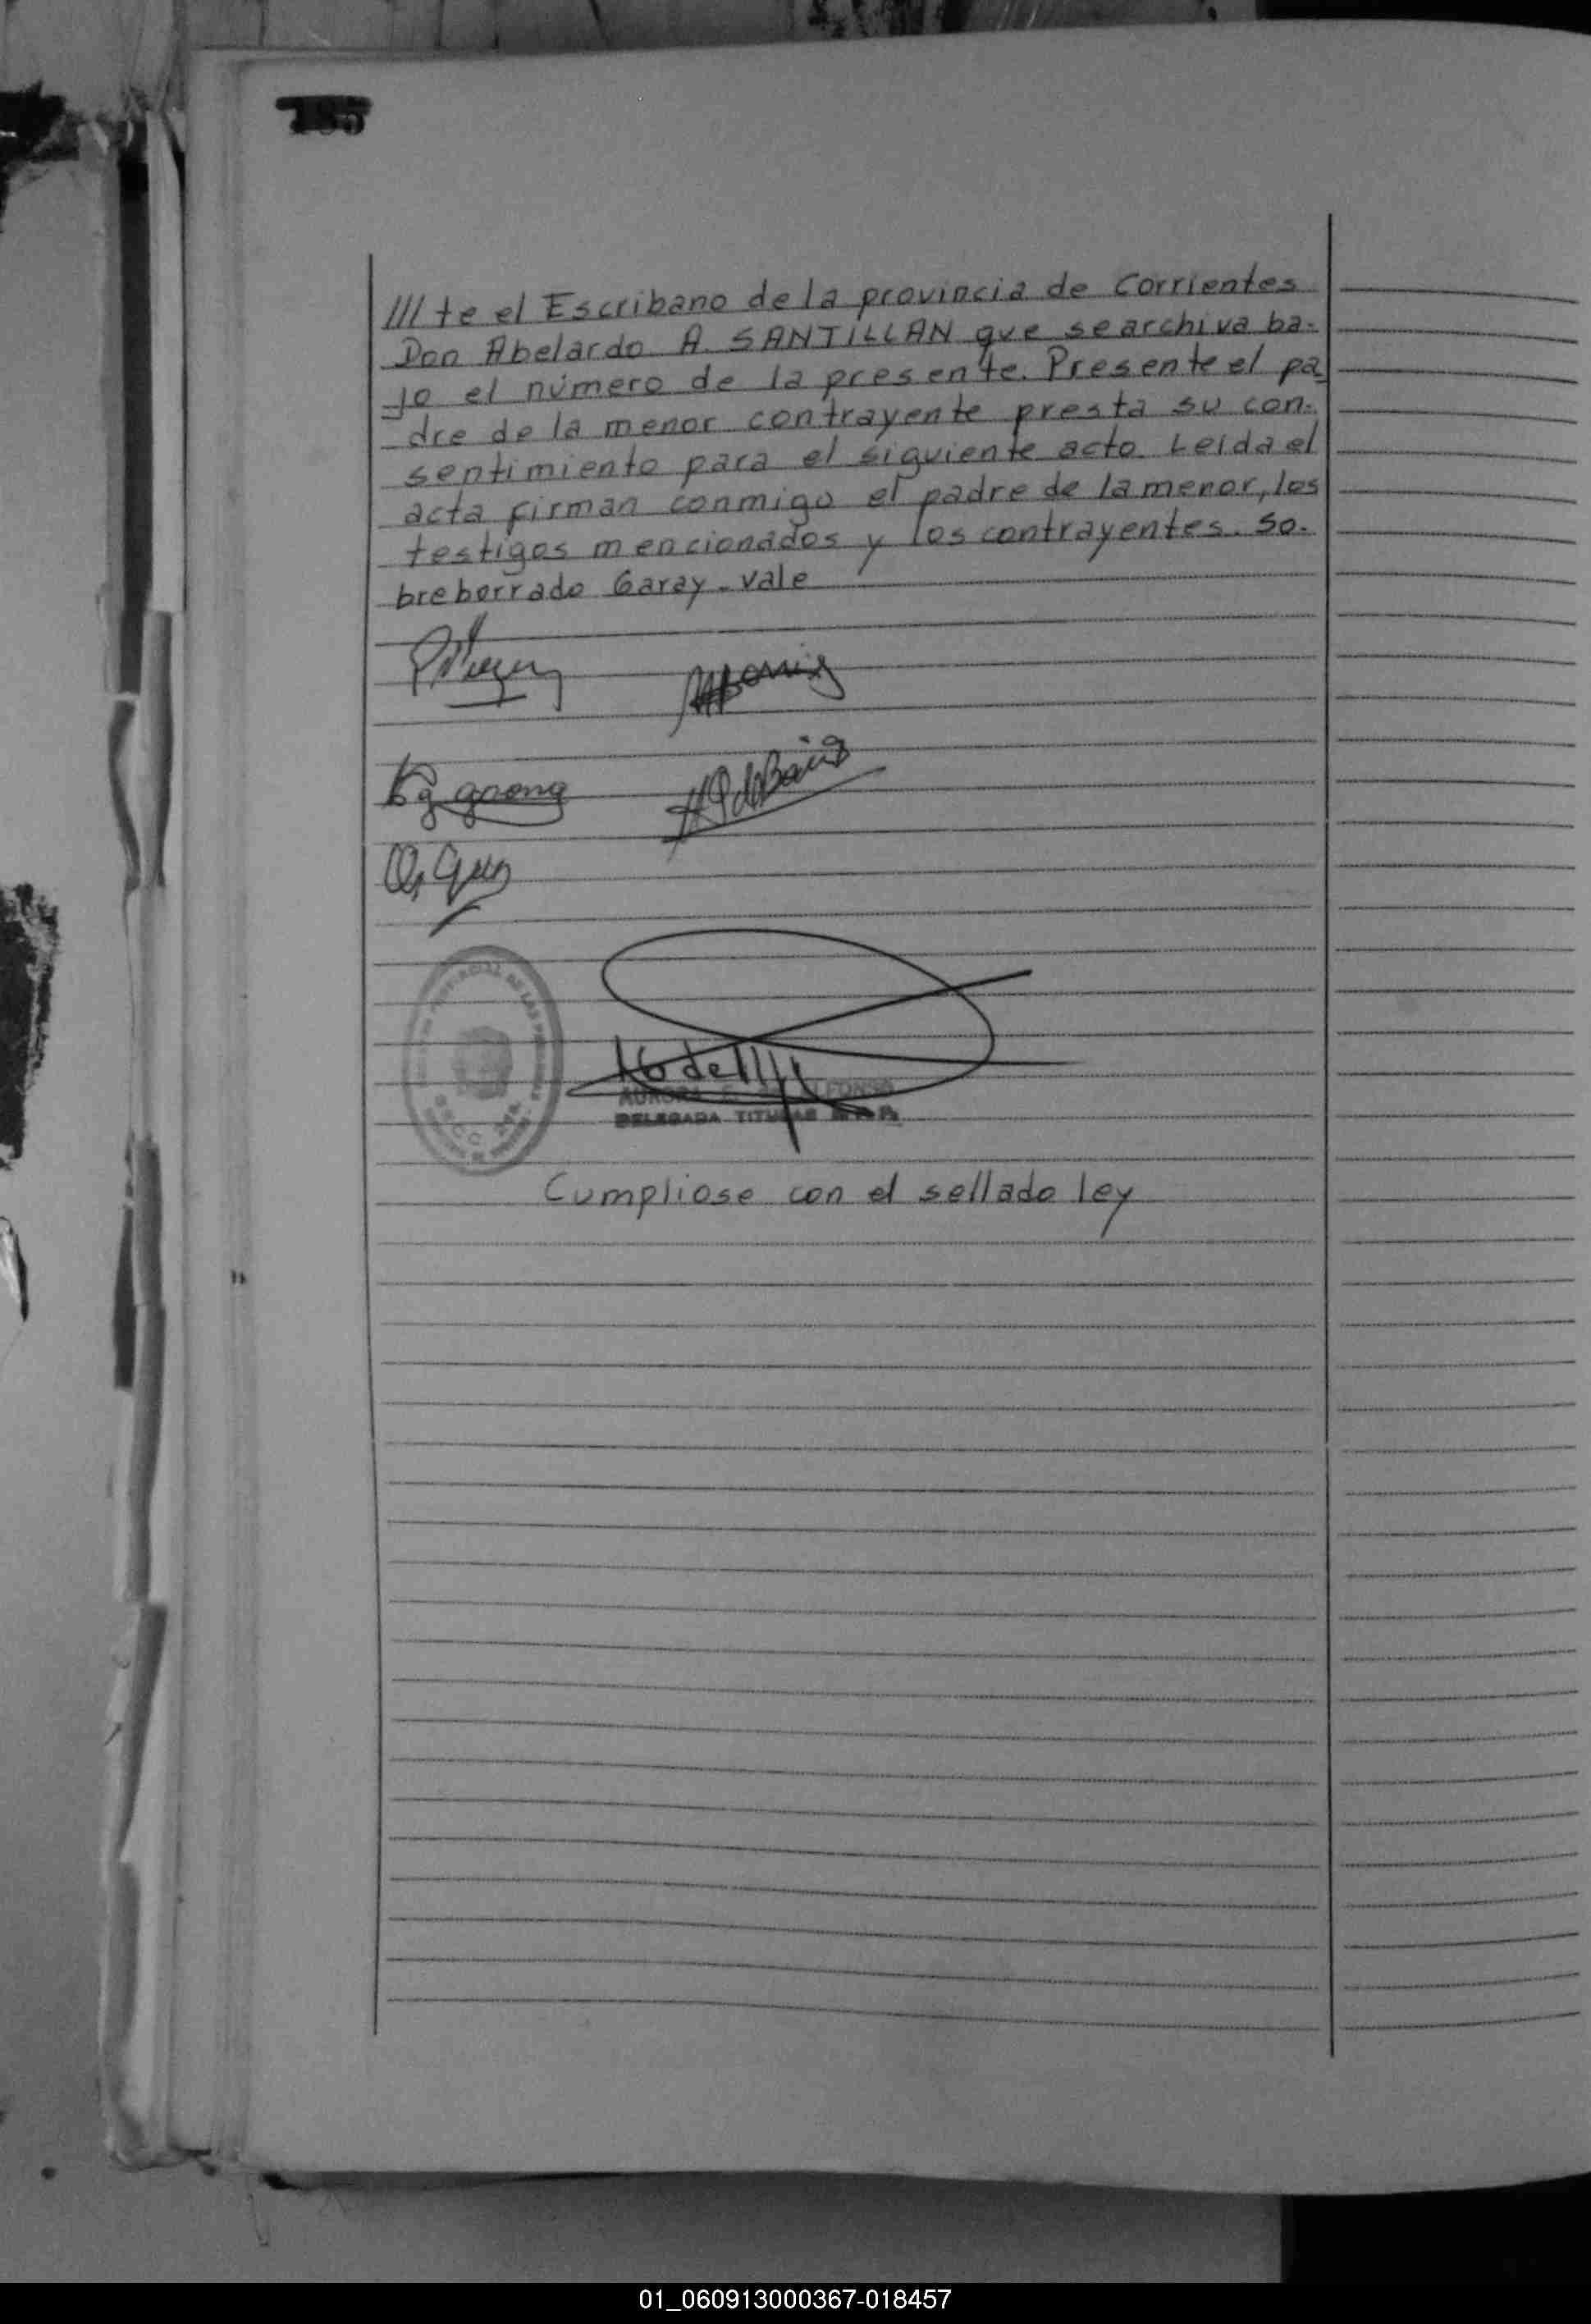 185
/// te el Escribano de la provincia de Corrientes
Don Abelardo A. SANTILLAN que se archiva ba-
jo el número de la presente. Presente el pa-
dre de la menor contrayente presta su con-
sentimiento para el siguiente acto. Leida el
acta firman conmigo el padre de la menor, los
testigos mencionados y los contrayentes. So-
breborrado Garay - vale
AURORA E. DELEGADA TITULAR
Cumpliose con el sellado ley
01_060913000367-018457